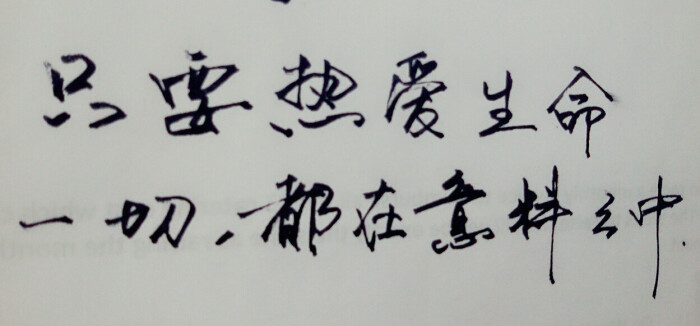 只要热爱生命
一切，都在意料之中.